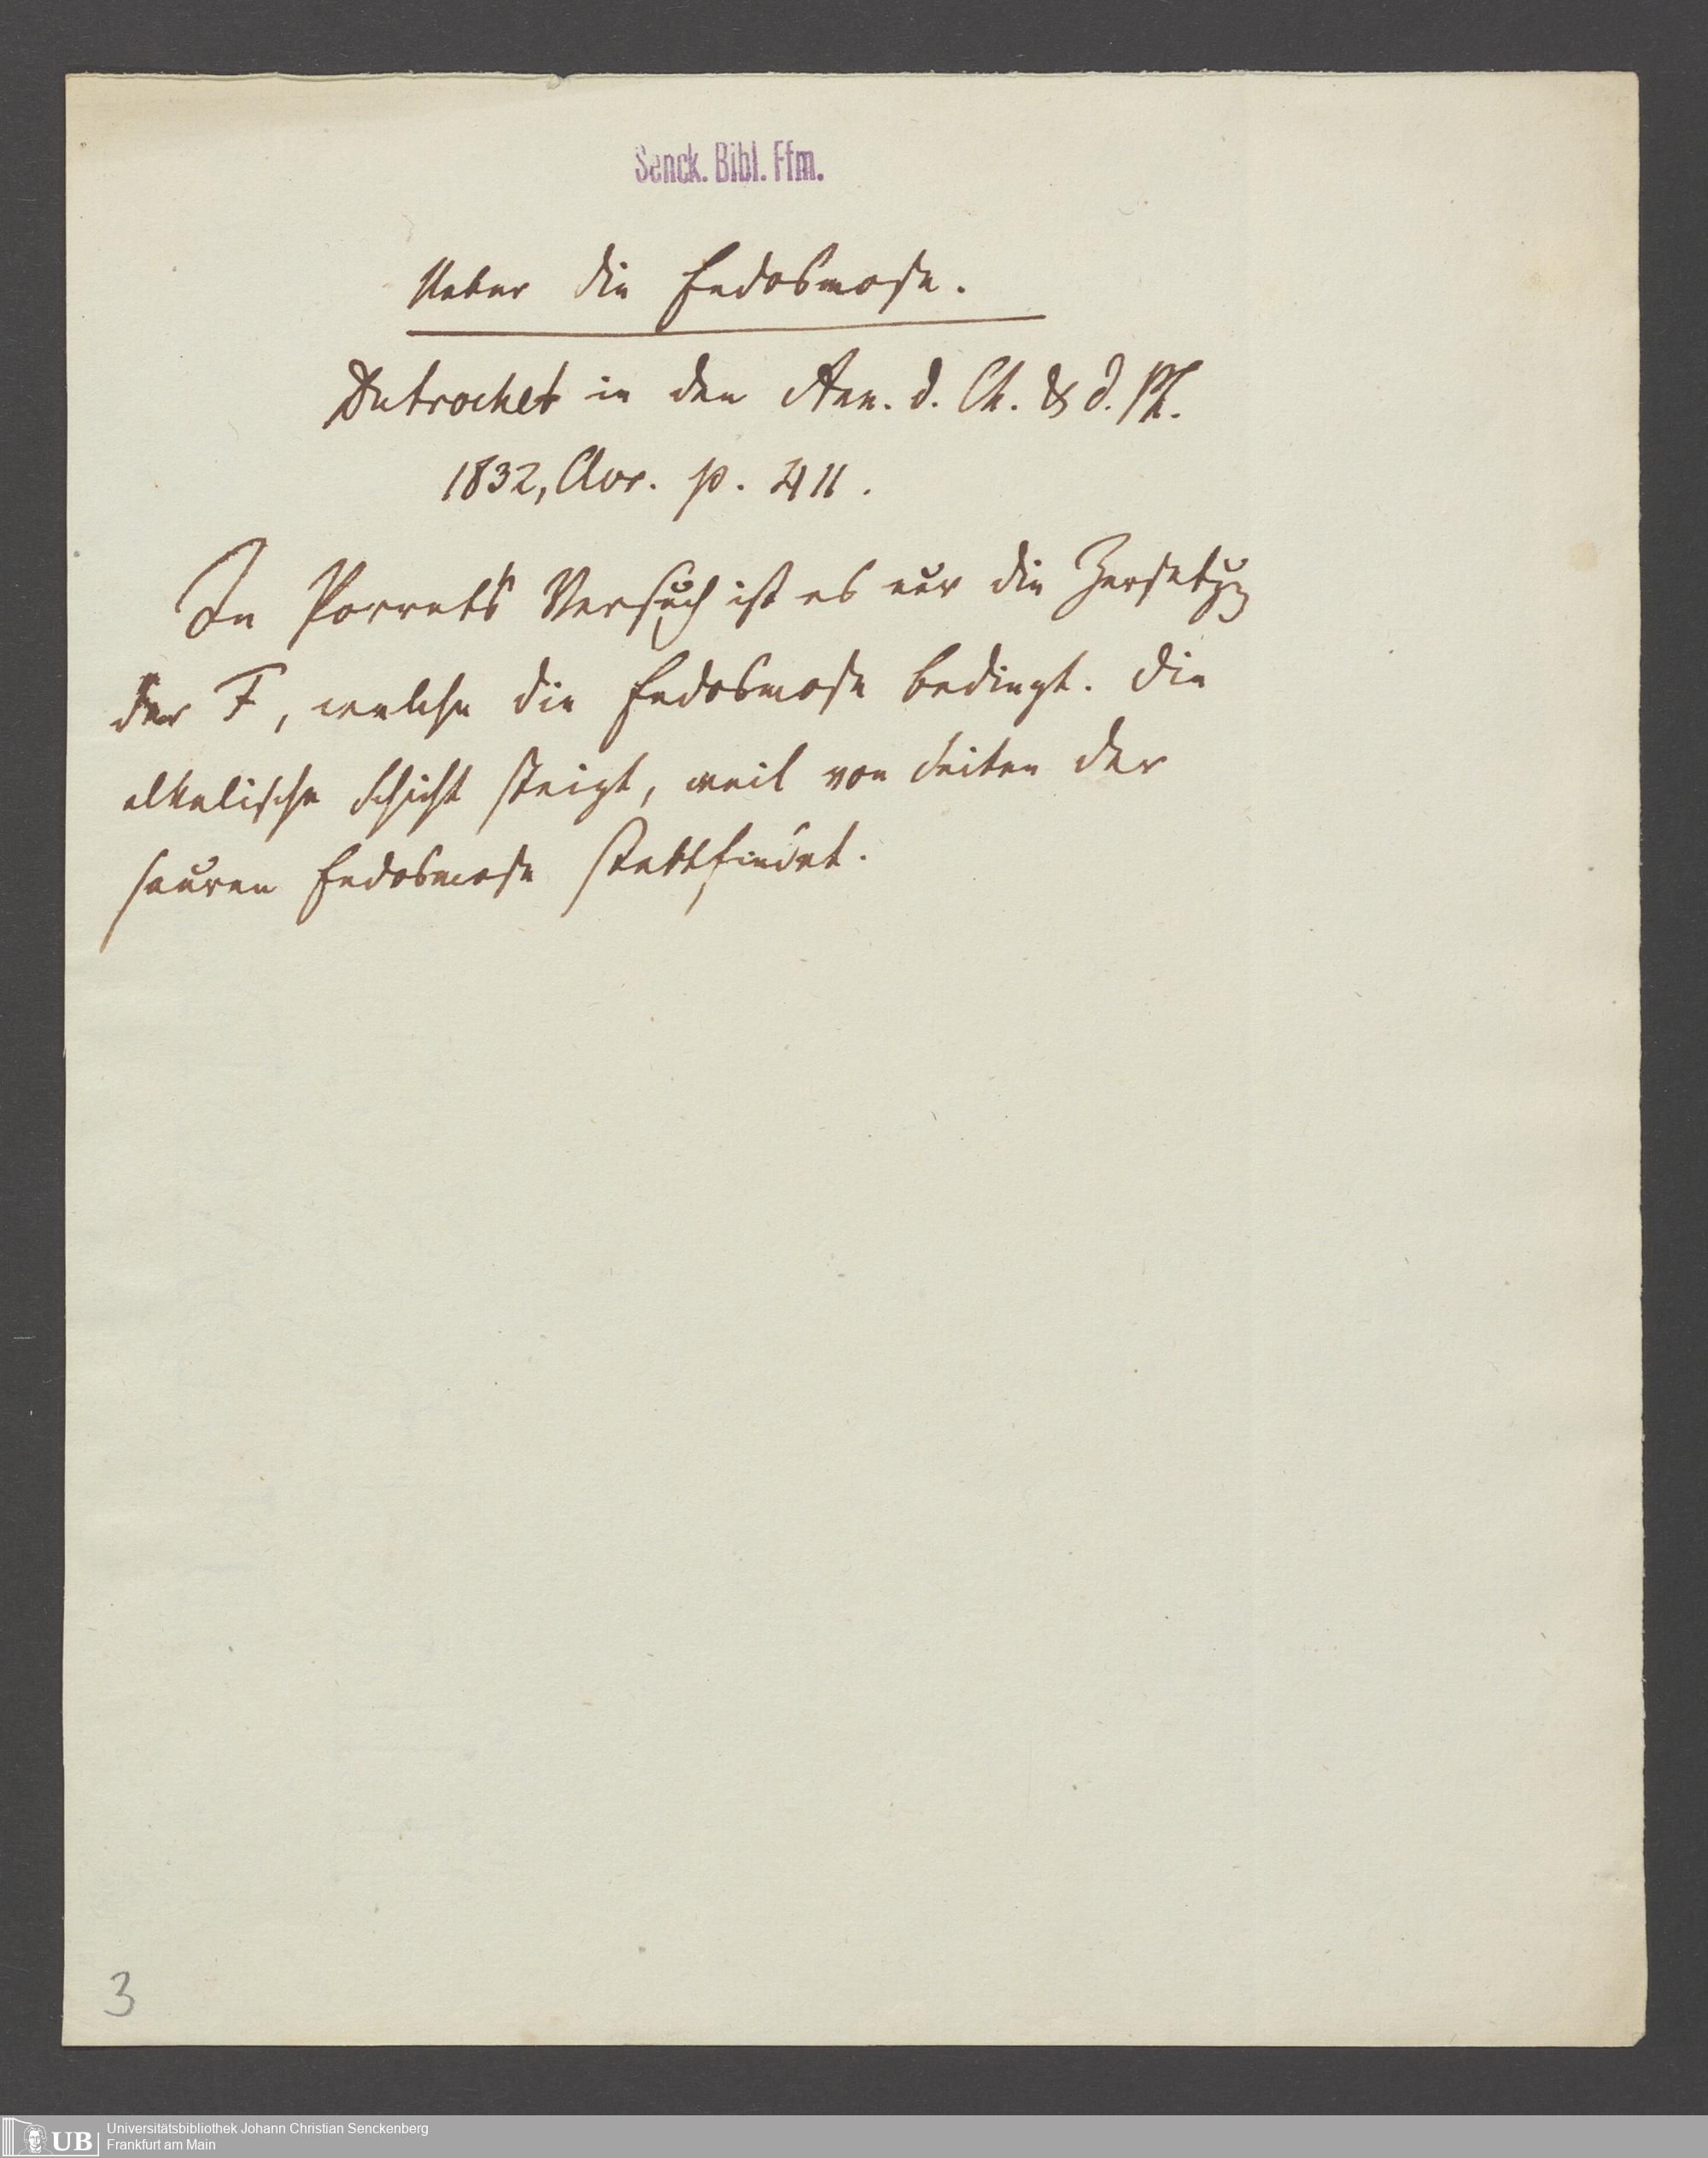 Senck. Bibl. Ffm.
Ueber die Endosmose.
Dutrochet in den Ann. d. Ch. & d. Ph.
1832, Avr. p. 411.
In Porrets Versuch ist es nur die Zersetzung
der F, welche die Endosmose bedingt. Die
alkalische Schicht steigt, weil von Seiten der
sauren Endosmose stattfindet.
3
UB
Universitätsbibliothek Johann Christian Senckenberg
Frankfurt am Main